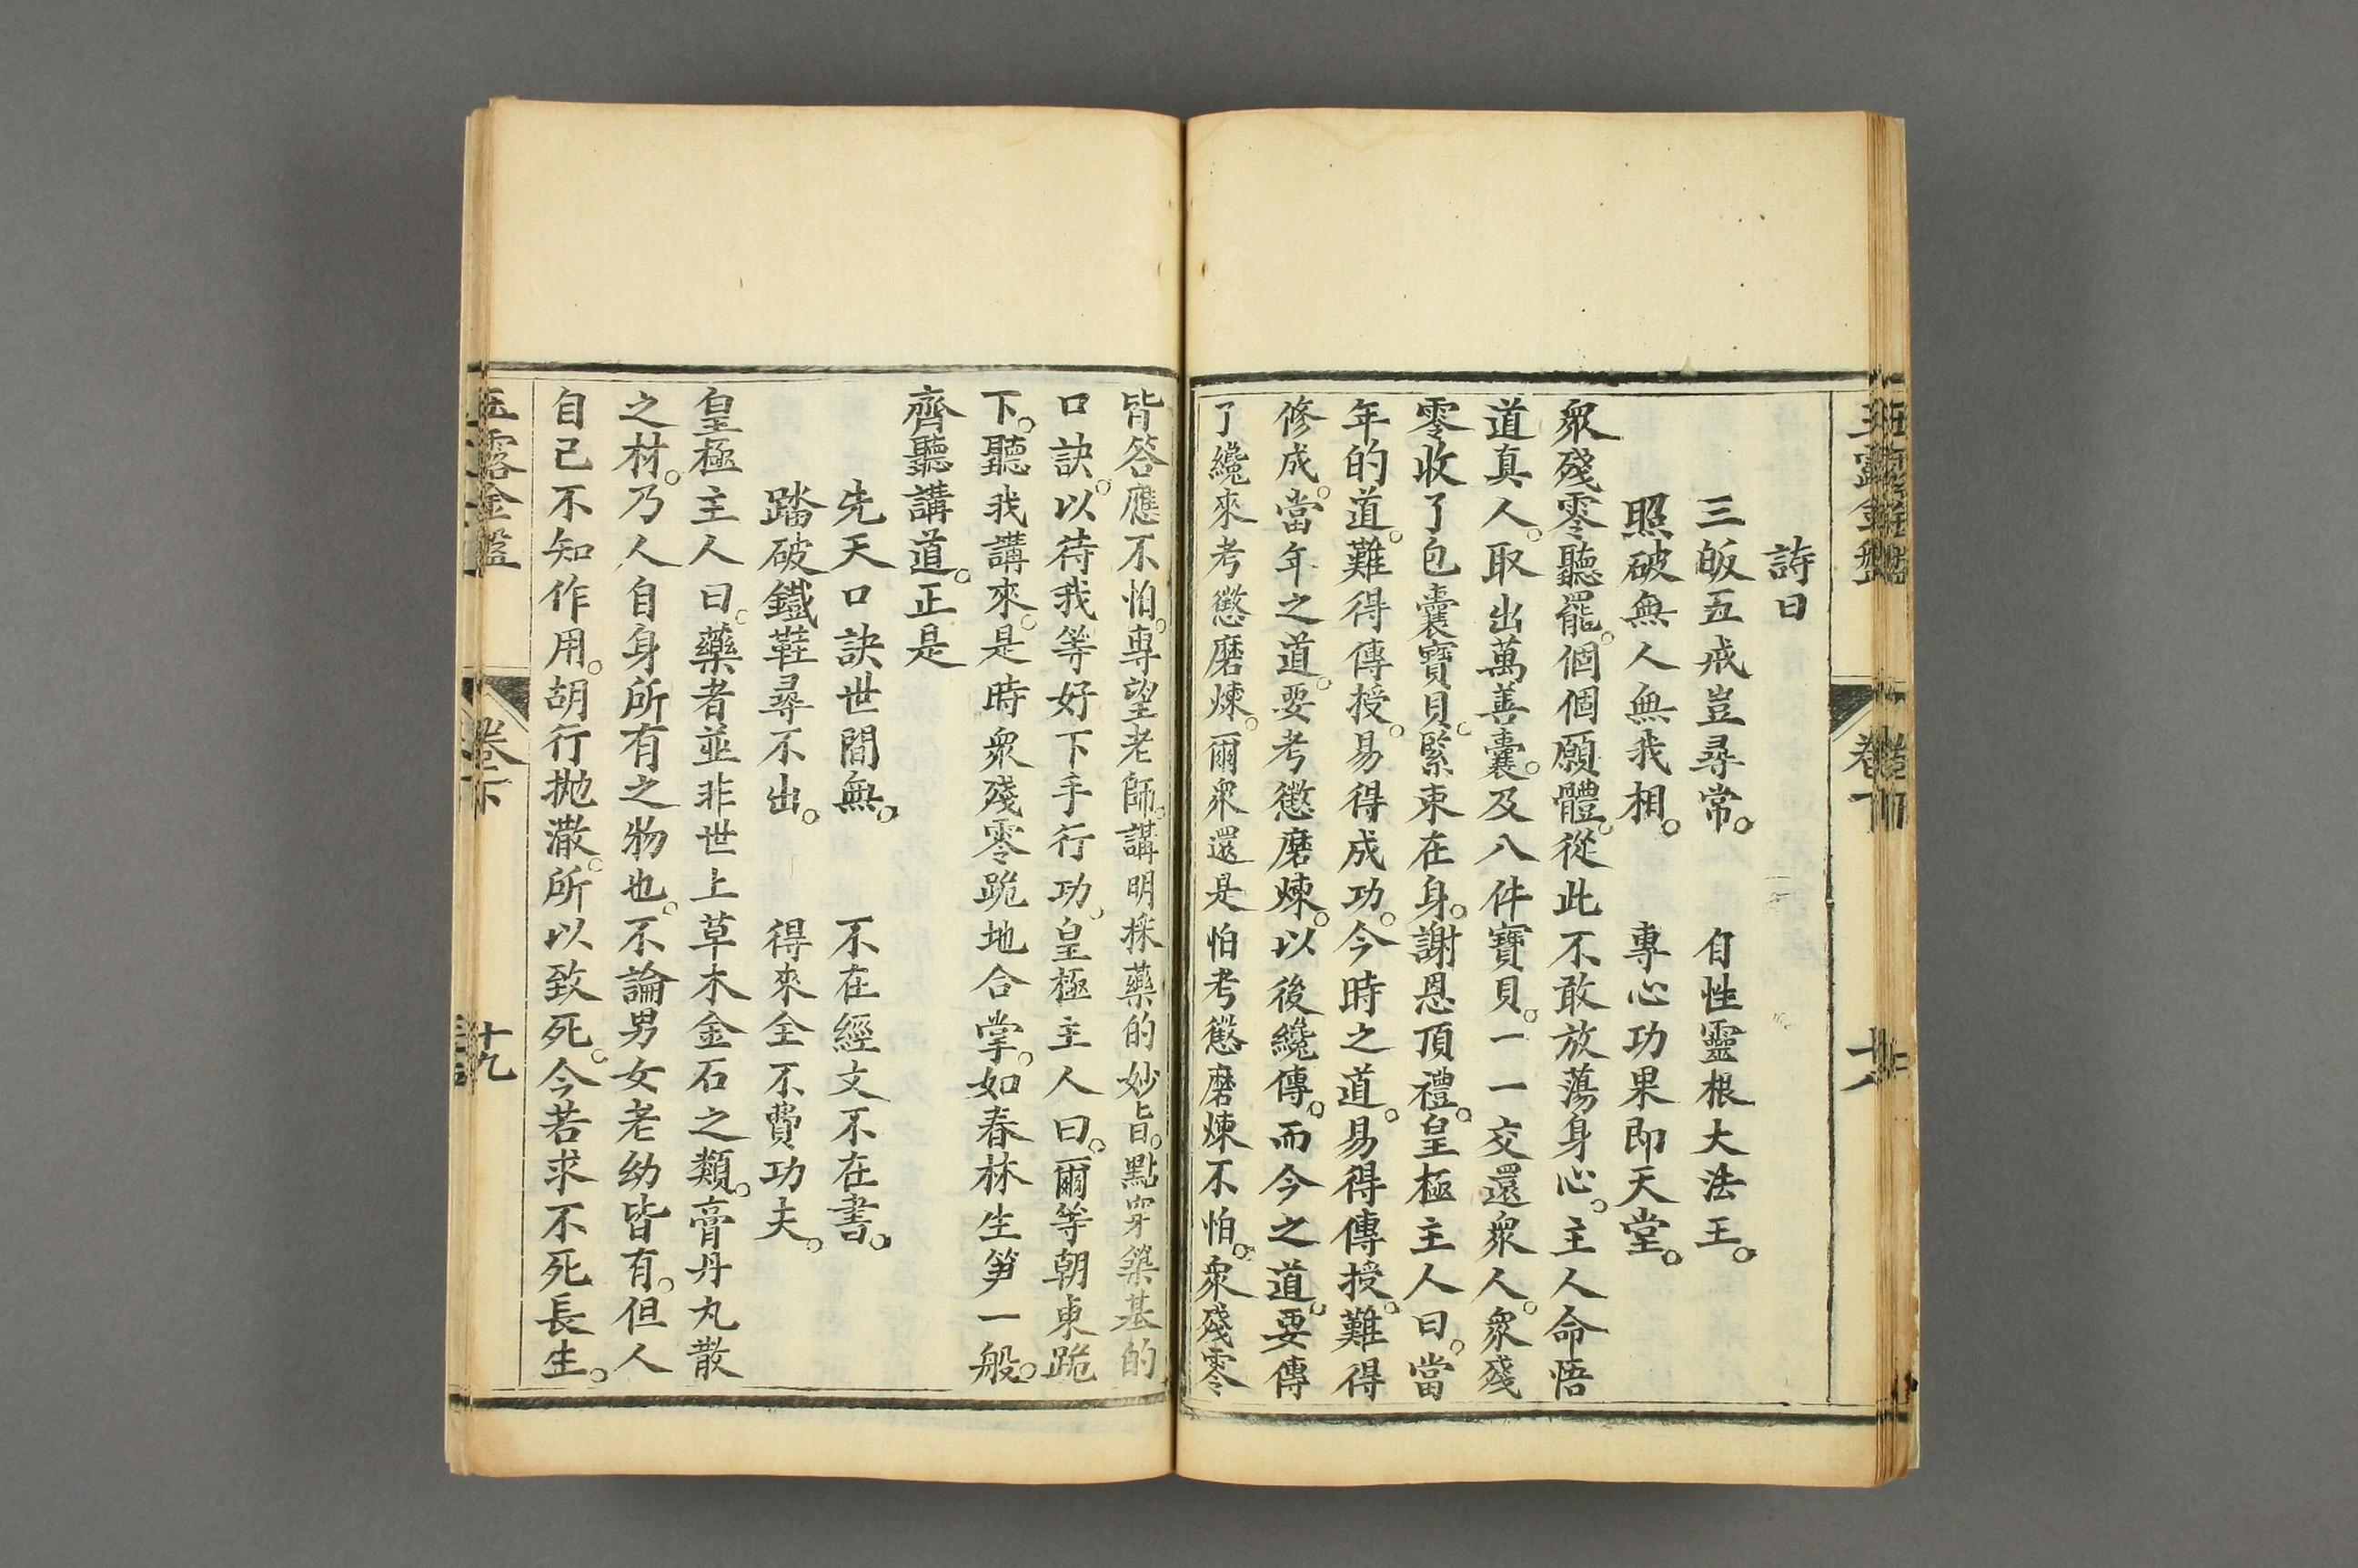 詩曰
三皈五戒豈尋常。 自性靈根大法王。
照破無人無我相。 專心功果即天堂。
衆殘零聽罷。個個願體。從此不敢放蕩身心。主人命悟
道真人。取出萬善囊。及八件寶貝。一一交還衆人。衆殘
零收了包囊寶貝。緊束在身。謝恩頂禮。皇極主人曰。當
年的道。難得傳授。易得成功。今時之道。易得傳授。難得
修成。當年之道。要考懲磨煉。以後纔傳。而今之道。要傳
了纔來考懲磨煉。爾衆還是怕考懲磨煉不怕。衆殘零
皆答應不怕。專望老師。講明採藥的妙旨。點穿築基的
口訣。以待我等好下手行功。皇極主人曰。爾等朝東跪
下。聽我講來。是時衆殘零跪地合掌。如春林生笋一般。
齊聽講道。正是
先天口訣世間無。 不在經文不在書。
踏破鐵鞋尋不出。 得來全不費功夫。
皇極主人曰。藥者並非世上草木金石之類。膏丹丸散
之材。乃人自身所有之物也。不論男女老幼皆有。但人
自己不知作用。胡行拋潵。所以致死。今若求不死長生。
露金盤 卷下 十九